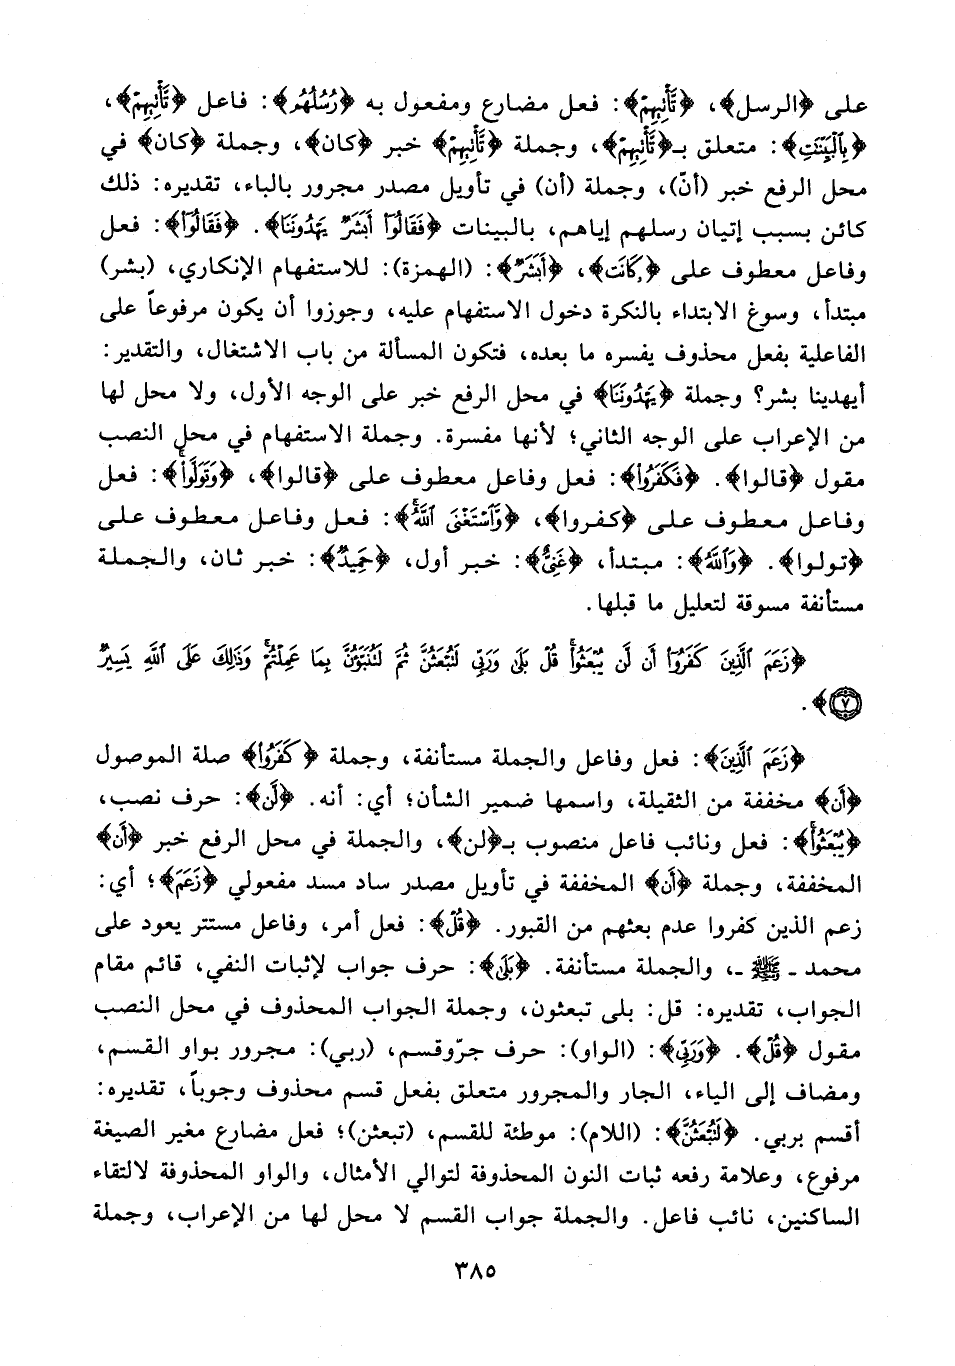 على ﴿الرسل﴾، ﴿تَّأْتِيهِمْ﴾: فعل مضارع ومفعول به ﴿رُسُلُهُم﴾: فاعل ﴿تَّأْتِيهِمْ﴾،
﴿بِالْبَيِّنَٰتِ﴾: متعلق بـ﴿تَّأْتِيهِمْ﴾، وجملة ﴿تَّأْتِيهِمْ﴾ خبر ﴿كان﴾، وجملة ﴿كان﴾ في
محل الرفع خبر (أنّ)، وجملة (أن) في تأويل مصدر مجرور بالباء، تقديره: ذلك
كائن بسبب إتيان رسلهم إياهم، بالبينات ﴿فَقَالُوٓا۟ أَبَشَرٌ يَهْدُونَنَا﴾. ﴿فَقَالُوٓا۟﴾: فعل
وفاعل معطوف على ﴿كَانَت﴾، ﴿أَبَشَرٌ﴾: (الهمزة): للاستفهام الإنكاري، (بشر)
مبتدأ، وسوغ الابتداء بالنكرة دخول الاستفهام عليه، وجوزوا أن يكون مرفوعاً على
الفاعلية بفعل محذوف يفسره ما بعده، فتكون المسألة من باب الاشتغال، والتقدير:
أيهدينا بشر؟ وجملة ﴿يَهْدُونَنَا﴾ في محل الرفع خبر على الوجه الأول، ولا محل لها
من الإعراب على الوجه الثاني؛ لأنها مفسرة. وجملة الاستفهام في محل النصب
مقول ﴿قالوا﴾. ﴿فَكَفَرُوا۟﴾: فعل وفاعل معطوف على ﴿قالوا﴾، ﴿وَتَوَلَّوا۟ۚ﴾: فعل
وفاعل معطوف على ﴿كفروا﴾، ﴿وَّاسْتَغْنَى اللَّهُۚ﴾: فعل وفاعل معطوف على
﴿تولوا﴾. ﴿وَاللَّهُ﴾: مبتدأ، ﴿غَنِيٌّ﴾: خبر أول، ﴿حَمِيدٌ﴾: خبر ثان، والجملة
مستأنفة مسوقة لتعليل ما قبلها.
﴿زَعَمَ الَّذِينَ كَفَرُوٓا۟ أَن لَّن يُبْعَثُوا۟ۚ قُلْ بَلَىٰ وَرَبِّى لَتُبْعَثُنَّ ثُمَّ لَتُنَبَّؤُنَّ بِمَا عَمِلْتُمْۚ وَذَٰلِكَ عَلَى اللَّهِ يَسِيرٌ
٧﴾.
﴿زَعَمَ الَّذِينَ﴾: فعل وفاعل والجملة مستأنفة، وجملة ﴿كَفَرُوٓا۟﴾ صلة الموصول
﴿أَن﴾ مخففة من الثقيلة، واسمها ضمير الشأن؛ أي: أنه. ﴿لَّن﴾: حرف نصب،
﴿يُبْعَثُوا۟ۚ﴾: فعل ونائب فاعل منصوب بـ﴿لن﴾، والجملة في محل الرفع خبر ﴿أَن﴾
المخففة، وجملة ﴿أَن﴾ المخففة في تأويل مصدر ساد مسد مفعولي ﴿زَعَمَ﴾؛ أي:
زعم الذين كفروا عدم بعثهم من القبور. ﴿قُلْ﴾: فعل أمر، وفاعل مستتر يعود على
محمد ـ ﷺ ـ، والجملة مستأنفة. ﴿بَلَىٰ﴾: حرف جواب لإثبات النفي، قائم مقام
الجواب، تقديره: قل: بلى تبعثون، وجملة الجواب المحذوف في محل النصب
مقول ﴿قُلْ﴾. ﴿وَرَبِّى﴾: (الواو): حرف جرّ وقسم، (ربي): مجرور بواو القسم،
ومضاف إلى الياء، الجار والمجرور متعلق بفعل قسم محذوف وجوباً، تقديره:
أقسم بربي. ﴿لَتُبْعَثُنَّ﴾: (اللام): موطئة للقسم، (تبعثن)؛ فعل مضارع مغير الصيغة
مرفوع، وعلامة رفعه ثبات النون المحذوفة لتوالي الأمثال، والواو المحذوفة لالتقاء
الساكنين، نائب فاعل. والجملة جواب القسم لا محل لها من الإعراب، وجملة
٣٨٥